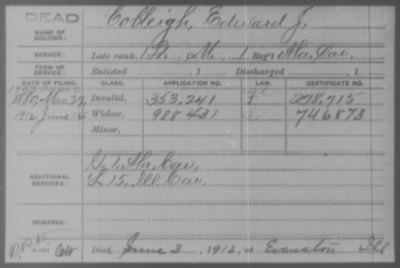 DEAD
NAME OF SOLDIER: Colleigh, Edward J.
SERVICE: Late rank, 1 Reg't Ala. Cav.
TERM OF SERVICE: Enlisted , 1 Discharged , 1
DATE OF FILING. CLASS. APPLICATION NO. LAW. CERTIFICATE NO.
Mar. 29, Invalid, 353.241 278.715
1912 June 14 Widow, 988431 746873
Minor,
ADDITIONAL SERVICES: 1 Ala. Cav.
15, Ill. Cav.
REMARKS:
Died June 3, 1912, at Evanston Ill